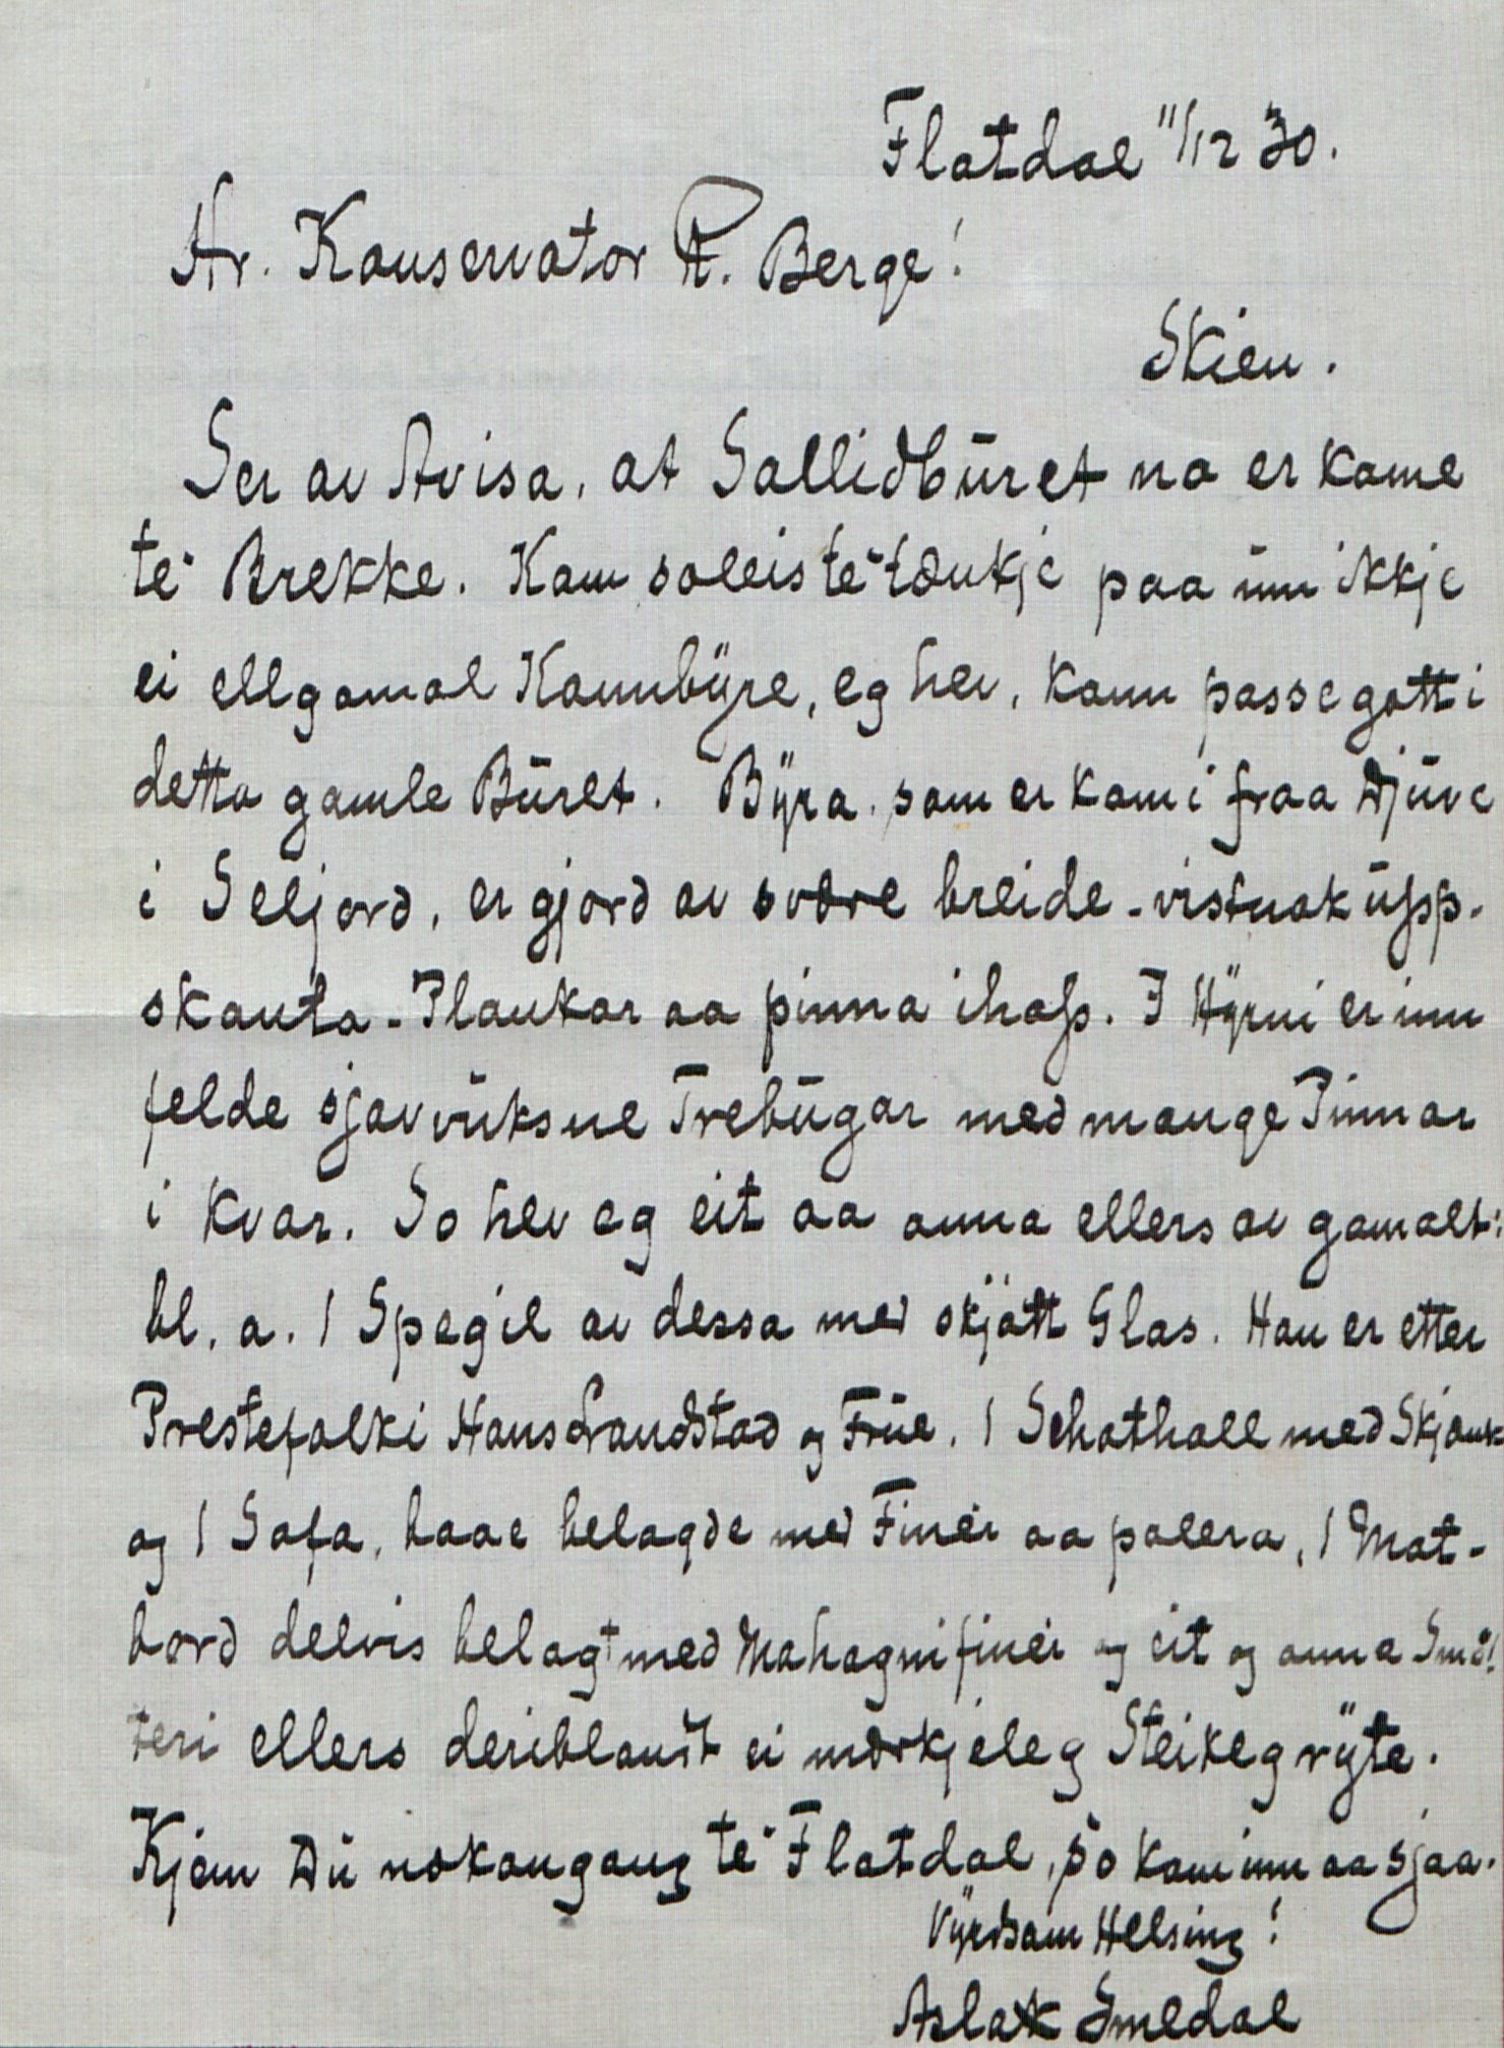 Flatdal 11/12 30.
Hr. Konservator R. Berge!
Skien.
Ser av Avisa, at Sallidburet no er kome
te Brekke. Kom soleis te tænkje paa um ikkje
ei ellgomol Konnbyre, eg hev, kann passe gott i
detta gamle Buret. Byra som er komi fraa Djuve
i Seljord, er gjord av svære breide - vistnok upp-
skanta - Plankar aa pinna ihop. I Hyrni er inn
felde sjavvuksne Trebugar med mange Pinnar
i kvar. So hev eg eit aa anna ellers av gamalt:
bl. a. 1 Spegil av dessa med skjøtt Glas. Han er etter
Prestefolki Hans Landstad og Frue. 1 Schothall med Skjænk
og 1 Sofa, baae belagde med Finer aa polera, 1 Mat-
bord delvis belagt med Mahognifiner og eit og anna Små!
teri ellers deriblandt ei mærkjeleg Steikegryte.
Kjem Du nokongong te Flatdal, so kom inn aa sjaa.
Vyrdsam Helsing!
Aslak Smedal